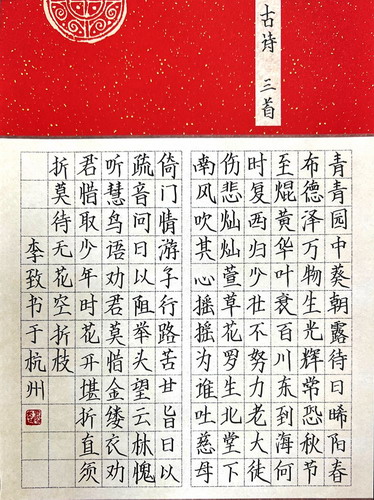 古诗 三首
青青园中葵朝露待日晞阳春
布德泽万物生光辉常恐秋节
至焜黄华叶衰百川东到海何
时复西归少壮不努力老大徒
伤悲灿灿萱草花罗生北堂下
南风吹其心摇摇为谁吐慈母
倚门情游子行路苦甘旨日以
疏音问日以阻举头望云林愧
听慧鸟语劝君莫惜金缕衣劝
君惜取少年时花开堪折直须
折莫待无花空折枝
李致书于杭州